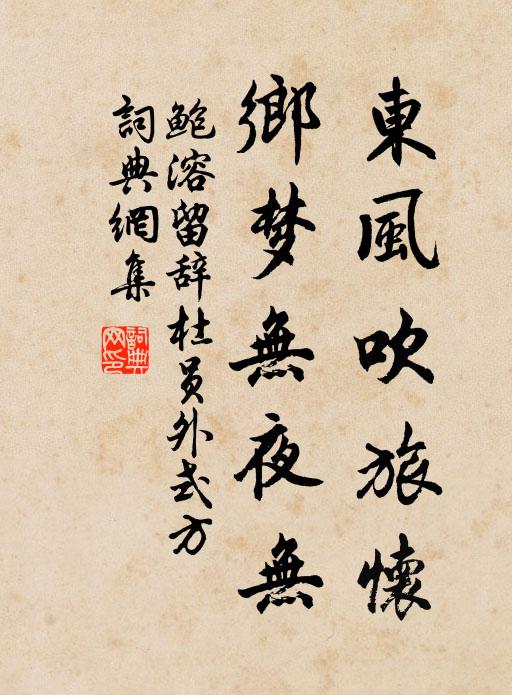 東風吹旅懷
鄉梦無夜無
鲍溶留辞杜员外式方
詞典網集
詞典网印